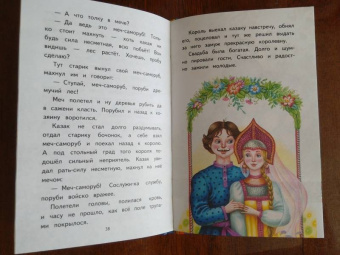 — А что толку в мече?
— Да ведь это меч-саморуб! Толь-
ко стоит махнуть — хоть какая ни
будь сила несметная, всю побьёт! Вон
видишь — лес растёт? Хочешь, пробу
сделаю?
Тут старик вынул свой меч-саморуб,
махнул им и говорит:
— Ступай, меч-саморуб, поруби дре-
мучий лес!
Меч полетел и ну деревья рубить да
в сажени класть. Порубил и назад к хо-
зяину воротился.
Казак не стал долго раздумывать,
отдал старику бочонок, а себе взял
меч-саморуб и поехал назад к королю.
А под стольный град того короля по-
дошёл сильный неприятель. Казак уви-
дал рать-силу несметную, махнул на неё
мечом:
— Меч-саморуб! Сослужи-ка службу,
поруби войско вражее.
Полетели головы, полилася кровь,
и часу не прошло, как всё поле трупа-
ми покрылося.
Король выехал казаку навстречу, обнял
его, поцеловал и тут же решил выдать
за него замуж прекрасную королевну.
Свадьба была богатая. Долго и шум-
но пировали гости. Счастливо и радост-
но зажили молодые.